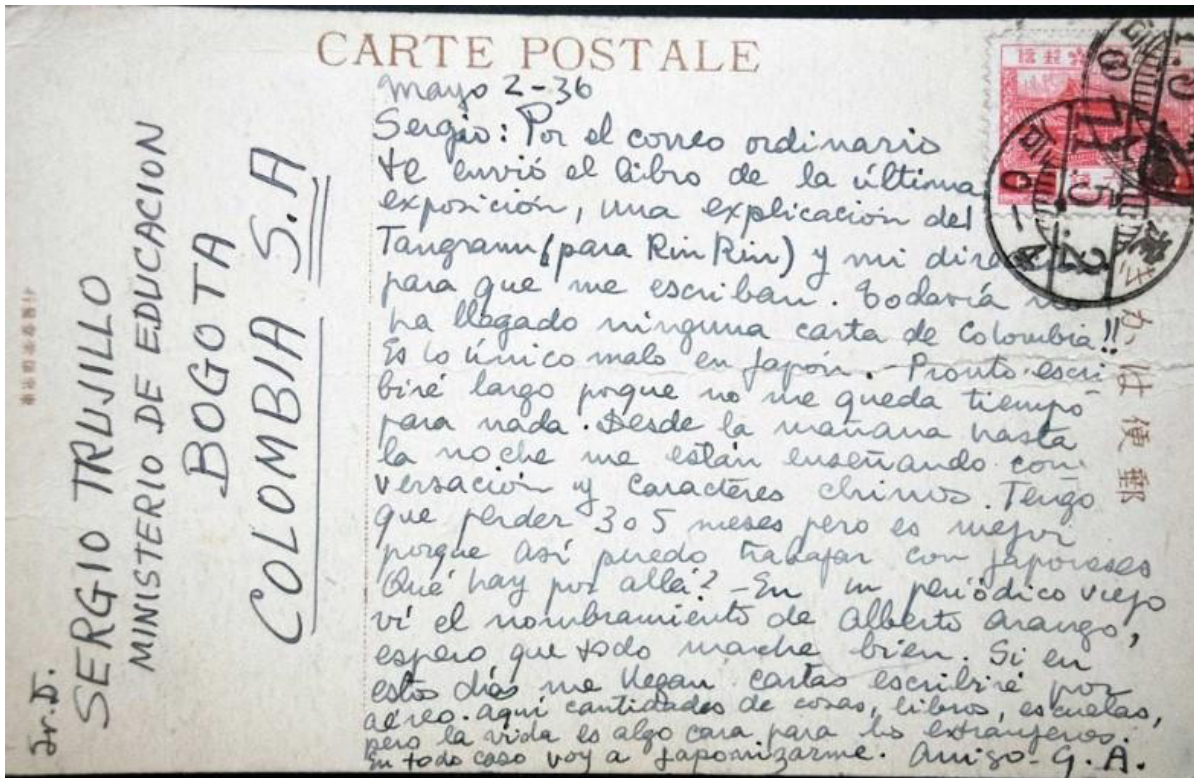 CARTE POSTALE
Mayo 2-36
Sergio: Por el correo ordinario
te envió el libro de la última
exposición, una explicación del
Tangramm (para Rin Rin) y mi direc
para que me escriban. Todavía no
ha llegado ninguna carta de Colombia!!
Es lo único malo en Japón. - Pronto escri
biré largo porque no me queda tiempo
para nada. Desde la mañana hasta
la noche me están enseñando con
versación y caractéres chinos. Tengo
que perder 3 o 5 meses pero es mejor
porque así puedo trabajar con japoneses
Qué hay por allá? - En un periódico viejo
ví el nombramiento de Alberto Arango,
espero que todo marche bien. Si en
estos días me llegan cartas escribiré por
aéreo. Aquí cantidades de cosas, libros, escuelas,
pero la vida es algo cara para los extranjeros.
En todo caso voy a japonizarme. Amigo - G. A.
Sr. D.
SERGIO TRUJILLO
MINISTERIO DE EDUCACION
BOGOTA
COLOMBIA S.A
郵便はかき